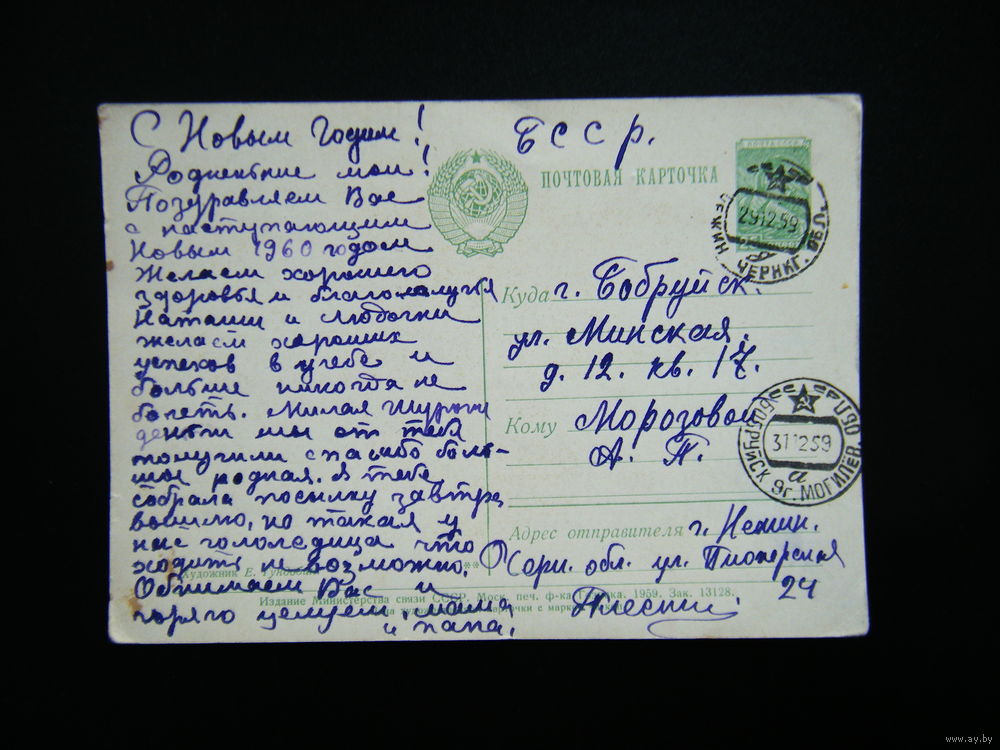 С Новым Годом!
Родненькие мои!
Поздравляем Вас
с наступающим
Новым 1960 годом
Желаем хорошего
здоровья и благополучья
Наташи и Любочки
желаем хороших
успехов в учебе и
больше никогда не
болеть. Милая Шурочка
деньги мы от тебя
получили спасибо боль-
шое родная. Я тебе
собрала посылку завтра
вышлю, но такая у
нас гололедица что
ходить невозможно.
Обнимаем Вас и
горячо целуем, мама
и папа.
БССР.
ПОЧТОВАЯ КАРТОЧКА
ПОЧТА СССР
29 12 59
НЕЖИН ЧЕРНИГ. ОБЛ.
Куда г. Бобруйск.
ул. Минская.
д. 12. кв. 17.
Кому Морозовой
А. П.
31 12 59
БОБРУЙСК 9 г. МОГИЛЕВ. ОБЛ
а
Адрес отправителя г. Нежин.
Черн. обл. ул. Пионерская
24
Художник Е.
Издание Министерства связи СССР. Моск. печ. ф-ка Гознака. 1959. Зак. 13128.
www.ay.by